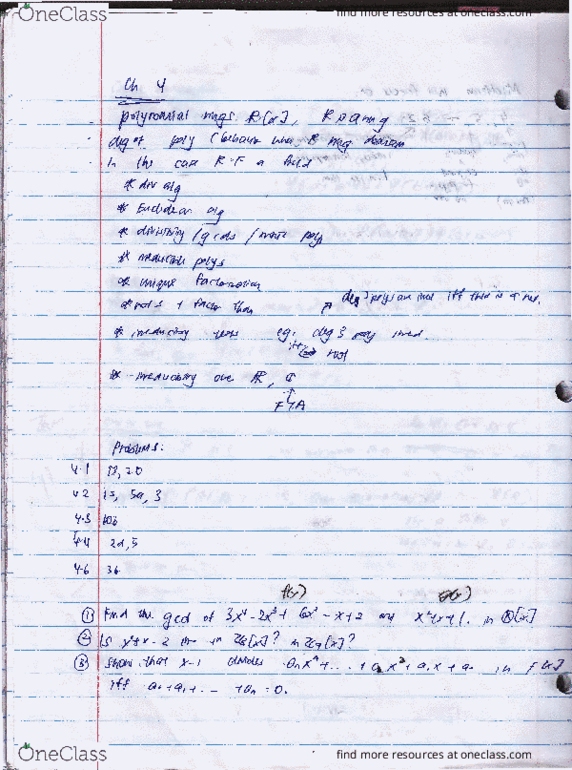 OneClass
find more resources at oneclass.com
Ch 4
polynomial rings R[x], R a ring
deg of poly (behaves when R integ domain
In the case R=F a field
* div alg
* Euclidean alg
* divisibility / gcds / monic polys
* irreducible polys
* unique factorization
* roots + factor thm
* irreducibility tests eg: deg 3 poly irred.
iff no root
* irreducibility over R, C
FTA
Problems:
4.1
4.2 5a, 3
4.3 10b
4.4 2d, 5
4.6 3b
f(x) g(x)
① Find the gcd of 3x⁴ - 2x³ + 6x² - x + 2 and x²+x+1. in Q[x]
② Is x²+x-2 irr in
③ Show that x-1 divides aₙxⁿ+...+a₂x²+a₁x+a₀ in F[x]
iff a₀+a₁+... +aₙ = 0.
OneClass
find more resources at oneclass.com